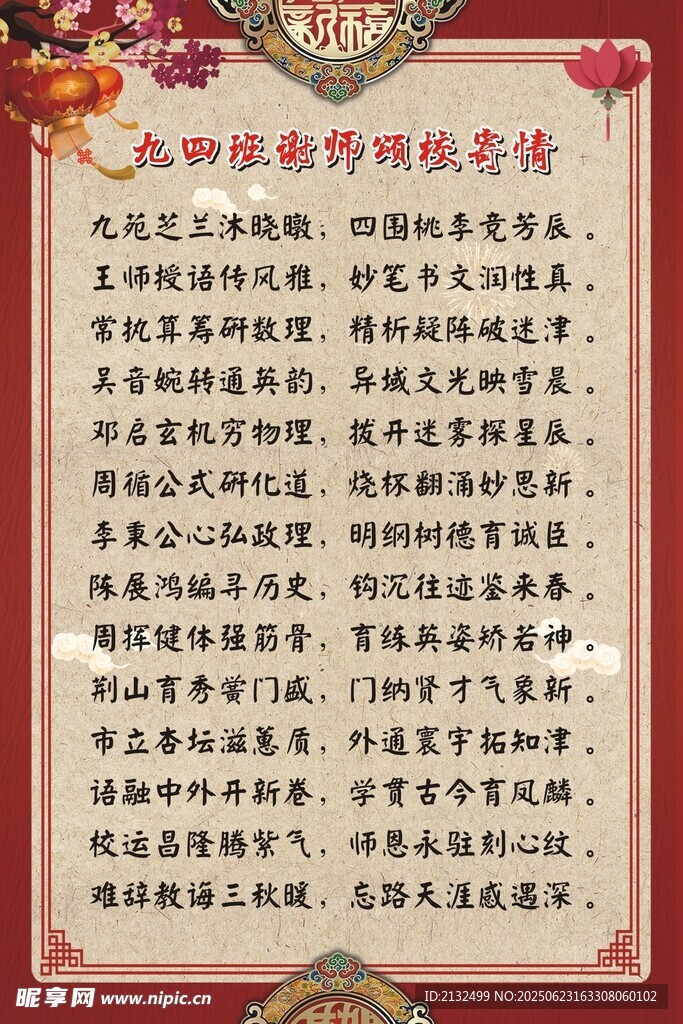 新禧
九四班谢师颂校寄情
九苑芝兰沐晓暾，四围桃李竞芳辰。
王师授语传风雅，妙笔书文润性真。
常执算筹研数理，精析疑阵破迷津。
吴音婉转通英韵，异域文光映雪晨。
邓启玄机穷物理，拨开迷雾探星辰。
周循公式研化道，烧杯翻涌妙思新。
李秉公心弘政理，明纲树德育诚臣。
陈展鸿编寻历史，钩沉往迹鉴来春。
周挥健体强筋骨，育练英姿矫若神。
荆山育秀黉门盛，门纳贤才气象新。
市立杏坛滋蕙质，外通寰宇拓知津。
语融中外开新卷，学贯古今育凤麟。
校运昌隆腾紫气，师恩永驻刻心纹。
难辞教诲三秋暖，忘路天涯感遇深。
昵享网 www.nipic.cn
ID:2132499 NO:20250623163308060102